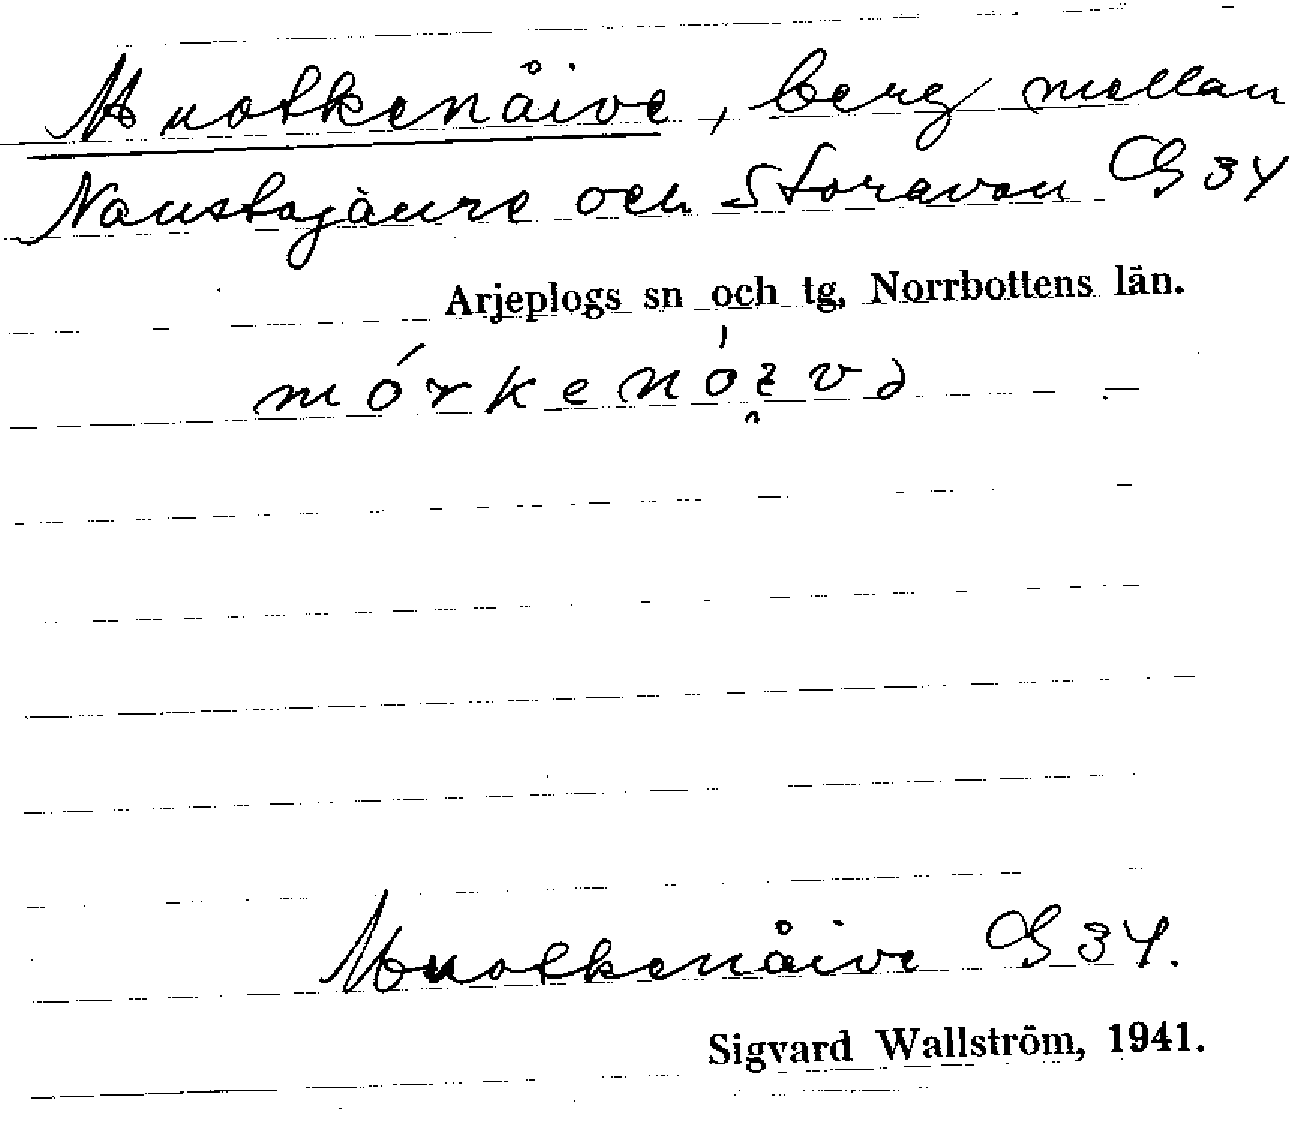 Muotkenåive, berg mellan
Naustajaure och Storavan G 34
Arjeplogs sn och tg, Norrbottens län.
Muotkenåive G 34.
Sigvard Wallström, 1941.